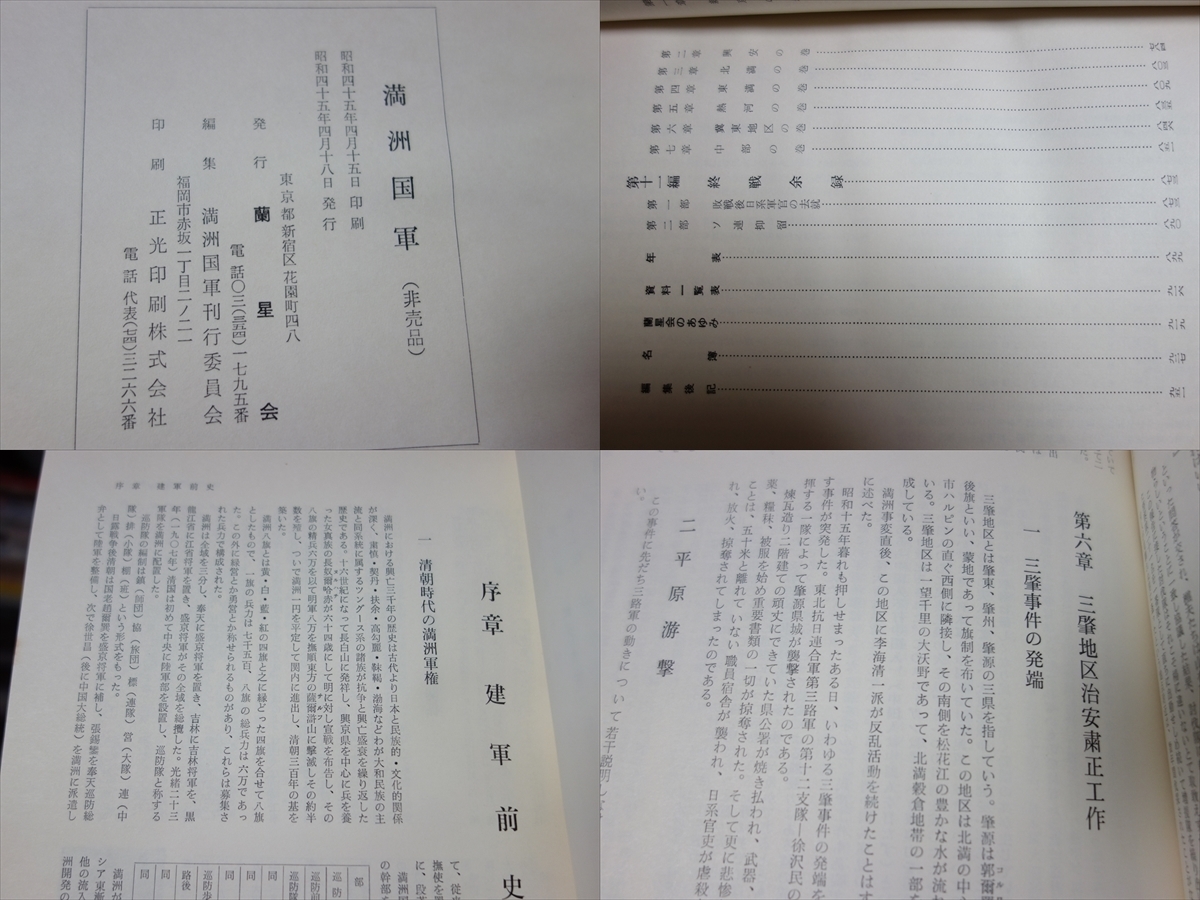 満洲国軍(非売品)
昭和四十五年四月十五日 印刷
昭和四十五年四月十八日 発行
東京都新宿区花園町四八
発行 蘭星会
電話〇三(三五四)一七九五番
編集 満洲国軍刊行委員会
福岡市赤坂一丁目二ノ二一
印刷 正光印刷株式会社
電話 代表(七四)三二六六番
第二章 興安の巻
第三章 北満の巻
第四章 東満の巻
第五章 熱河の巻
第六章 冀東地区の巻
第七章 中部の巻
第十一編 終戦余録
第一部 敗戦後日系軍官の去就
第二部 ソ連抑留
年表
資料一覧表
蘭星会のあゆみ
名簿
編集後記
序章 建軍前史
序章 建軍前史
一 清朝時代の満洲軍権
満洲における興亡三千年の歴史は古代より日本と民族的・文化的関係
が深く、粛慎・契丹・扶余・高勾麗・靺鞨・渤海などわが大和民族の主
流と同系統に属するツングース系の諸族が抗争と興亡盛衰を繰り返した
歴史である。十六世紀になって長白山に発祥し、興京県を中心に兵を養
った女真族の長奴爾哈赤が六十四歳にして明に対し宣戦を布告し、その
八旗の精兵六万を以て明軍八万を撫順東方の薩爾滸山に撃滅しその約半
数を殪し、ついで満洲一円を平定して関内に進出し、清朝三百年の基を
築いた。
満洲八旗とは黄・白・藍・紅の四旗と之に縁どった四旗を合せて八旗
としたもので、一旗の兵力は七千五百、八旗の総兵力は六万であっ
た。この外に緑営とか勇営とか称せられるものがあり、これらは募集さ
れた兵力で構成された。
満洲は全域を三分し、奉天に盛京将軍を置き、吉林に吉林将軍を、黒
龍江省に江省将軍を置き、盛京将軍がその全域を総攬した。光緒二十三
年(一九〇七年)清国は初めて中央に陸軍部を設置し、巡防隊と称する
軍隊を満洲に配置した。
巡防隊の編制は鎮(師団)協(旅団)標(連隊)営(大隊)連(中
隊)排(小隊)棚(班)という形式をもった。
日露戦争後清朝は国老趙爾巽を盛京将軍に補し、張錫鑾を奉天巡防総
弁として陸軍を整備し、次で徐世昌(後に中国大総統)を満洲に派遣し
第六章 三肇地区治安粛正工作
一 三肇事件の発端
三肇地区とは肇東、肇州、肇源の三県を指していう。肇源は郭爾
後旗といい、蒙地であって旗制を布いていた。この地区は北満の中
市ハルビンの直ぐ西側に隣接し、その南側を松花江の豊かな水が流
いる。三肇地区は一望千里の大沃野であって、北満穀倉地帯の一部を
成している。
満洲事変直後、この地区に李海清一派が反乱活動を続けたことはす
に述べた。
昭和十五年暮れも押しせまったある日、いわゆる三肇事件の発端を
す事件が突発した。東北抗日連合軍第三路軍の第十二支隊―徐沢民の
揮する一隊によって肇源県城が襲撃されたのである。
煉瓦造り二階建ての頑丈にできていた県公署が焼き払われ、武器、
薬、糧秣、被服を始め重要書類の一切が掠奪された。そして更に悲惨
ことは、五十米と離れていない職員宿舎が襲われ、日系官吏が虐殺
れ、放火、掠奪されてしまったのである。
二 平原游撃
この事件に先だち三路軍の動きについて若干説明し
い。